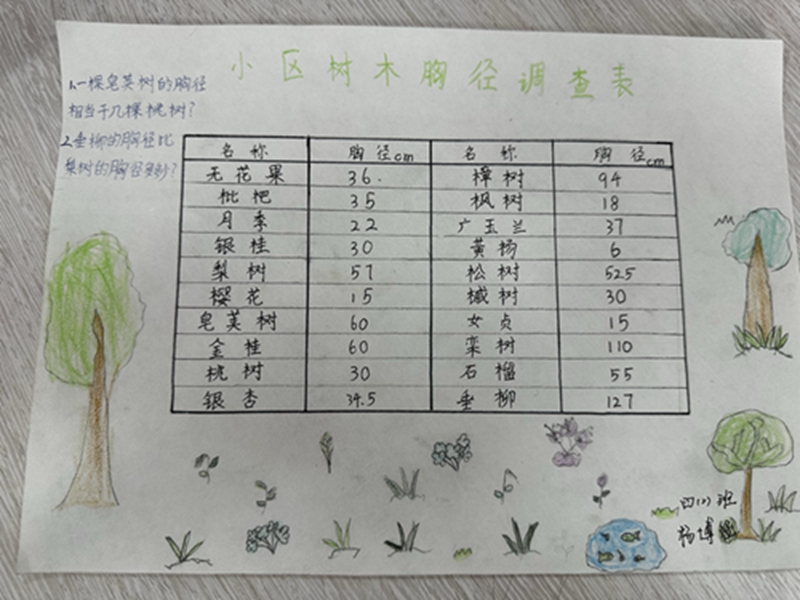 小区树木胸径调查表
1.一棵皂荚树的胸径
相当于几棵桃树?
2.垂柳的胸径比
梨树的胸径多多少?
名称 胸径cm 名称 胸径cm
无花果 36. 樟树 94
枇杷 35 枫树 18
月季 22 广玉兰 37
银桂 30 黄杨 6
梨树 57 松树 52.5
樱花 15 槭树 30
皂荚树 60 女贞 15
金桂 60 栾树 110
桃树 30 石榴 55
银杏 34.5 垂柳 127
四(2)班
杨博